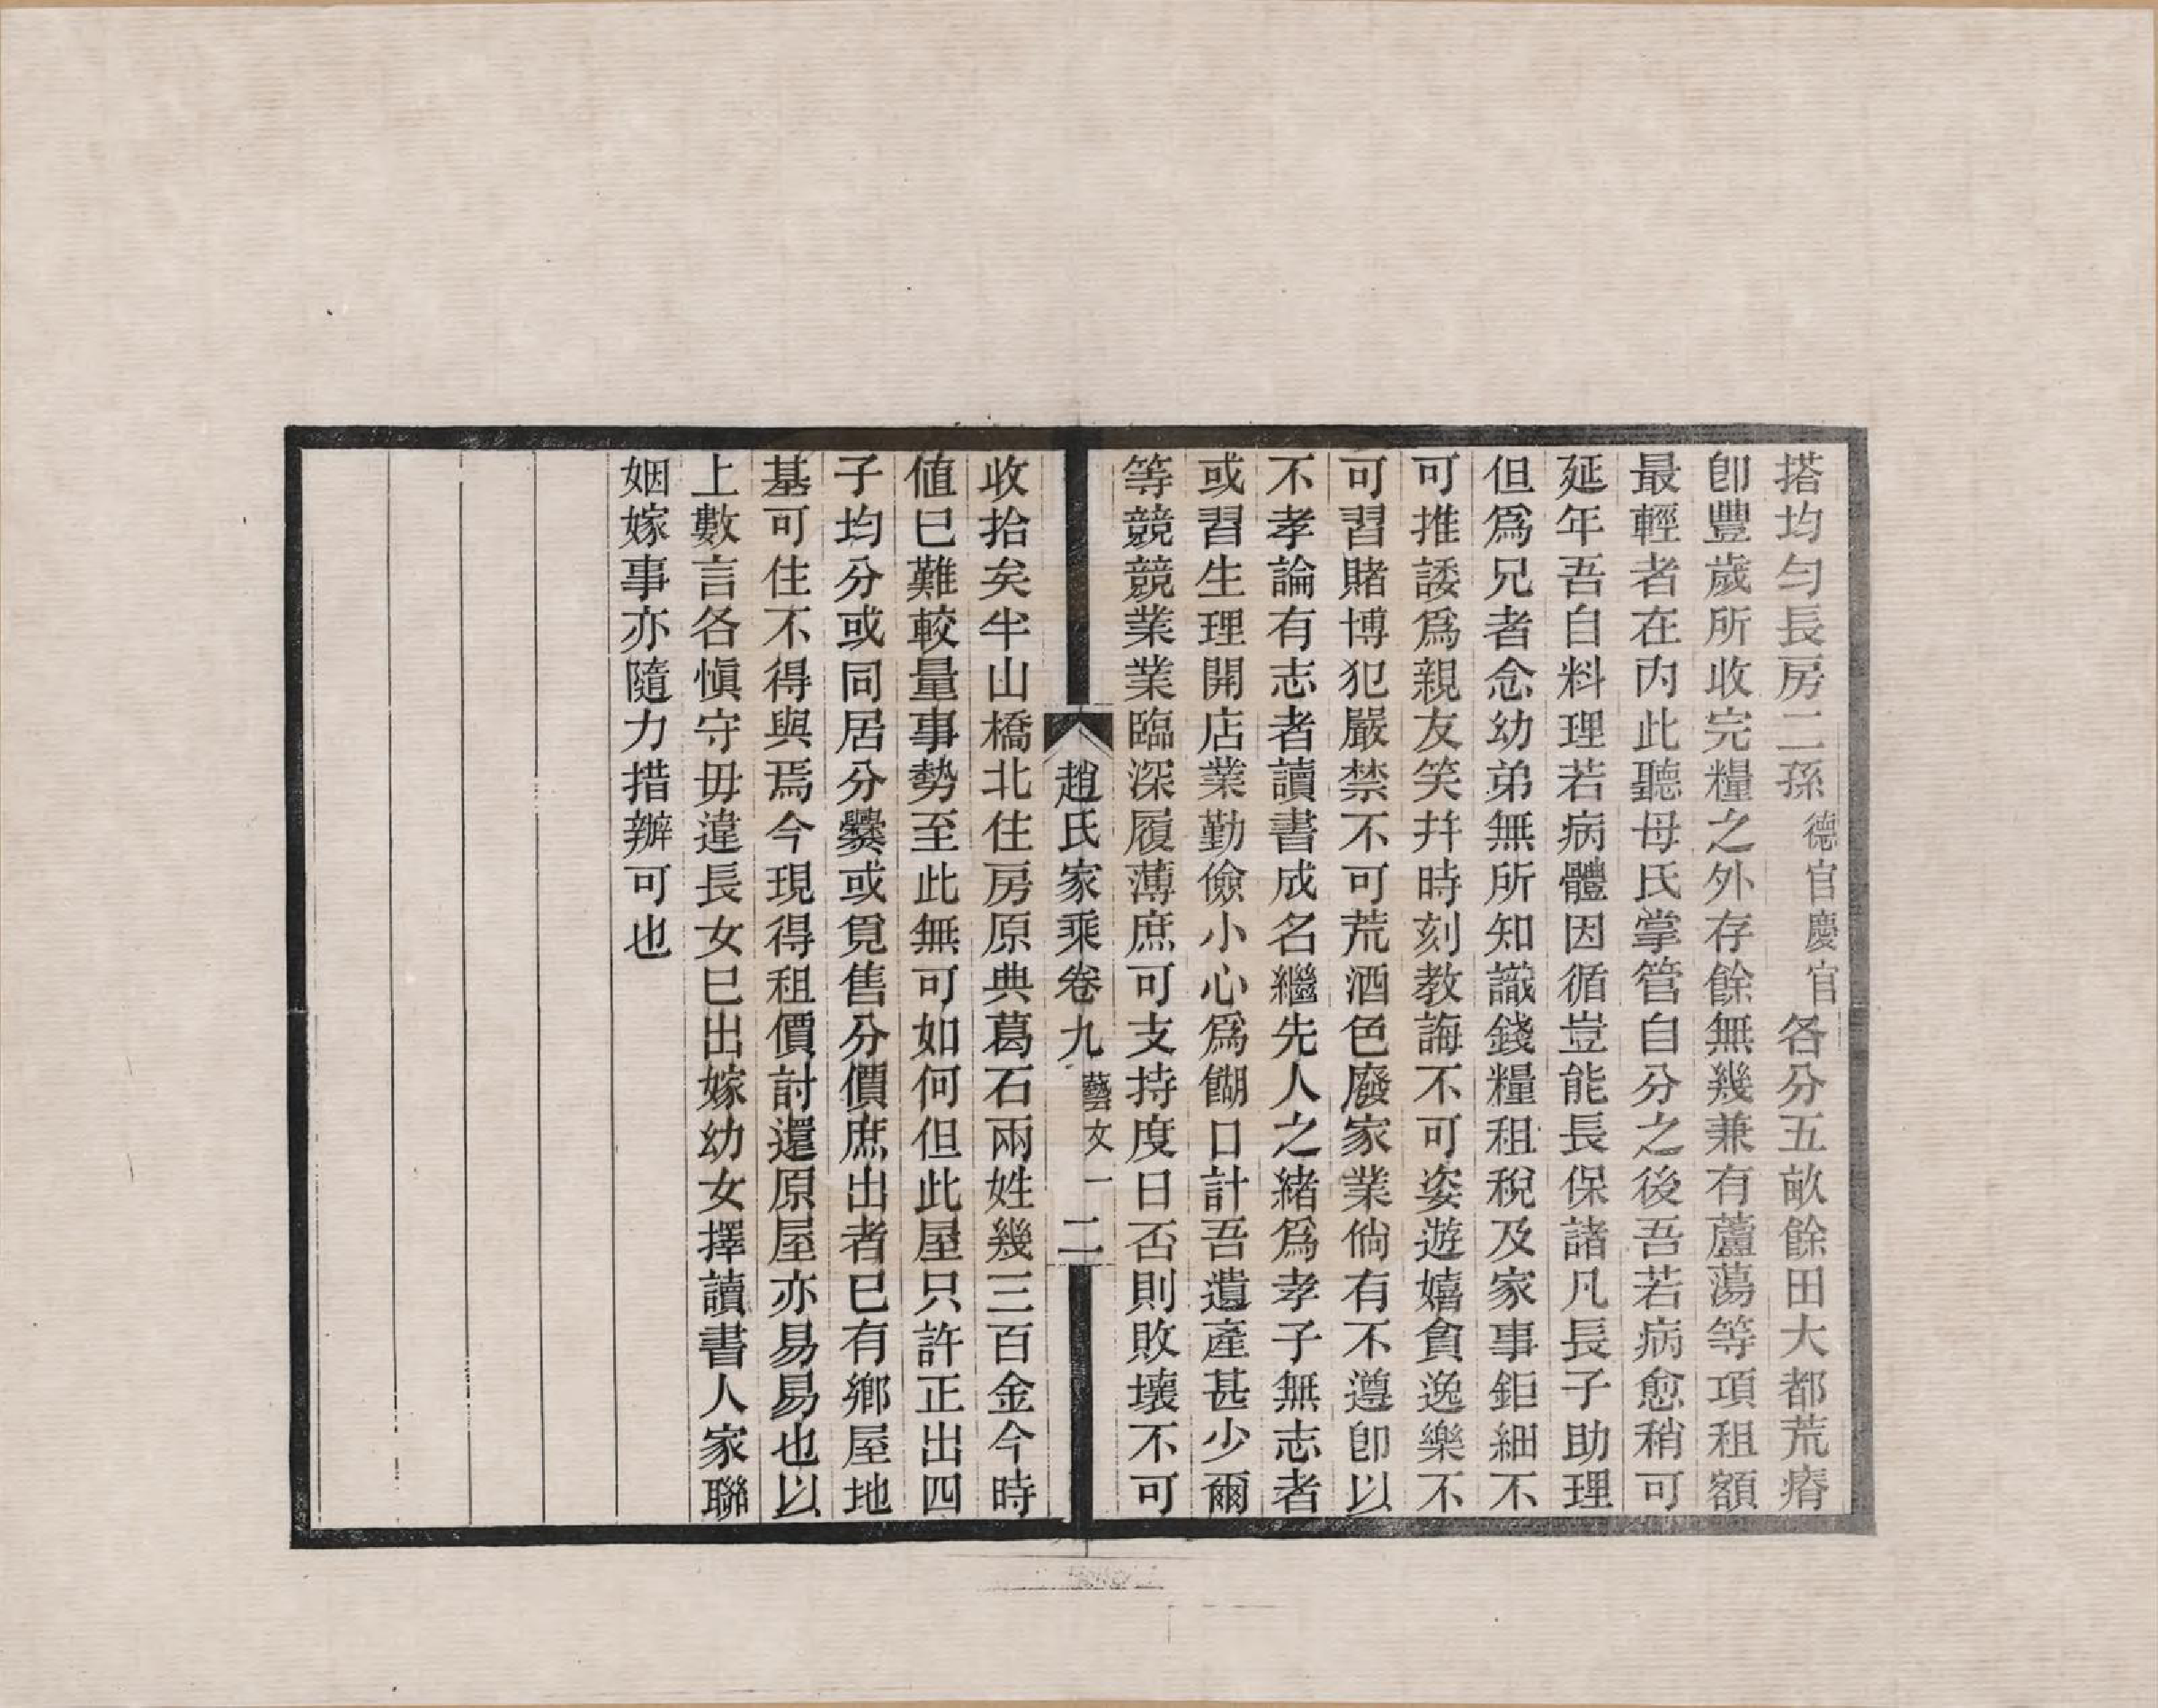 搭均勻長房二孫德官慶官各分五畝餘田大都荒瘠
卽豐歲所收完糧之外存餘無幾兼有蘆蕩等項租額
最輕者在內此聽母氏掌管自分之後吾若病愈稍可
延年吾自料理若病體因循豈能長保諸凡長子助理
但爲兄者念幼弟無所知識錢糧租稅及家事鉅細不
可推諉爲親友笑幷時刻教誨不可姿遊嬉貪逸樂不
可習賭博犯嚴禁不可荒酒色廢家業倘有不遵卽以
不孝論有志者讀書成名繼先人之緒爲孝子無志者
或習生理開店業勤儉小心爲餬口計吾遺產甚少爾
等競競業業臨深履薄庶可支持度日否則敗壞不可
趙氏家乘卷九 藝文一 二
收拾矣半山橋北住房原典葛石兩姓幾三百金今時
値已難較量事勢至此無可如何但此屋只許正出四
子均分或同居分爨或覓售分價庶出者已有鄕屋地
基可住不得與焉今現得租價討還原屋亦易易也以
上數言各愼守毋違長女已出嫁幼女擇讀書人家聯
姻嫁事亦隨力措辦可也